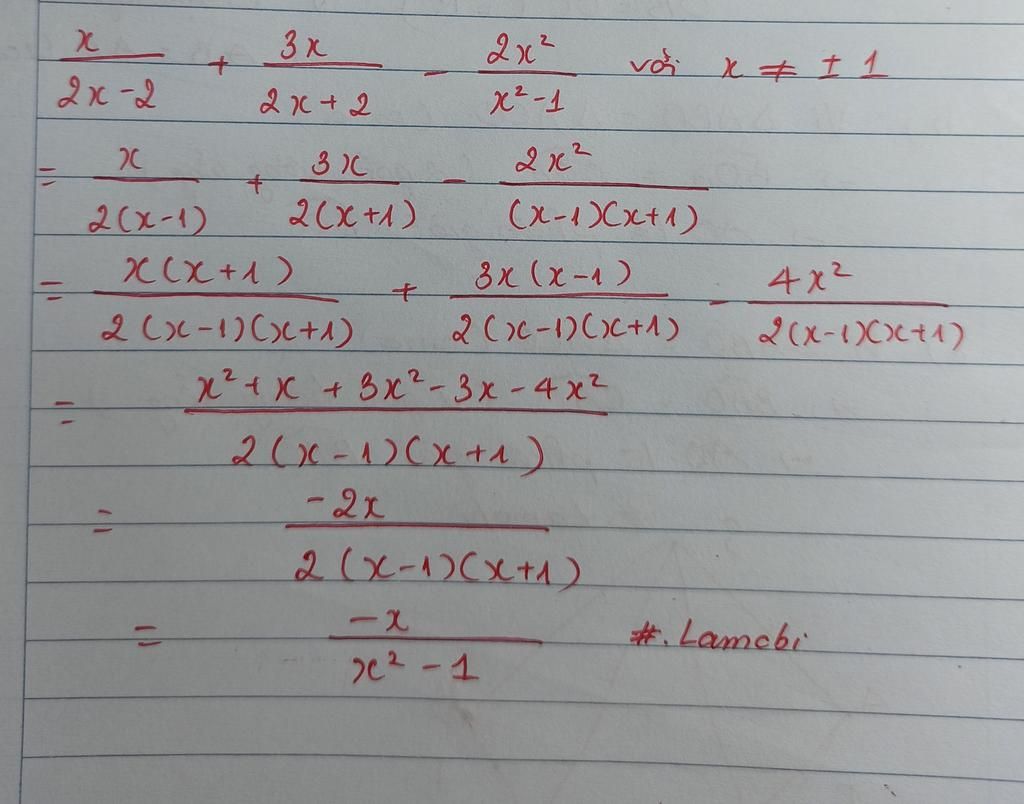 x/(2x-2) + 3x/(2x+2) - 2x²/(x²-1) với x ≠ ± 1
= x/(2(x-1)) + 3x/(2(x+1)) - 2x²/((x-1)(x+1))
= x(x+1)/(2(x-1)(x+1)) + 3x(x-1)/(2(x-1)(x+1)) - 4x²/(2(x-1)(x+1))
= (x²+x+3x²-3x-4x²)/(2(x-1)(x+1))
= -2x/(2(x-1)(x+1))
= -x/(x²-1) #. Lamcbi